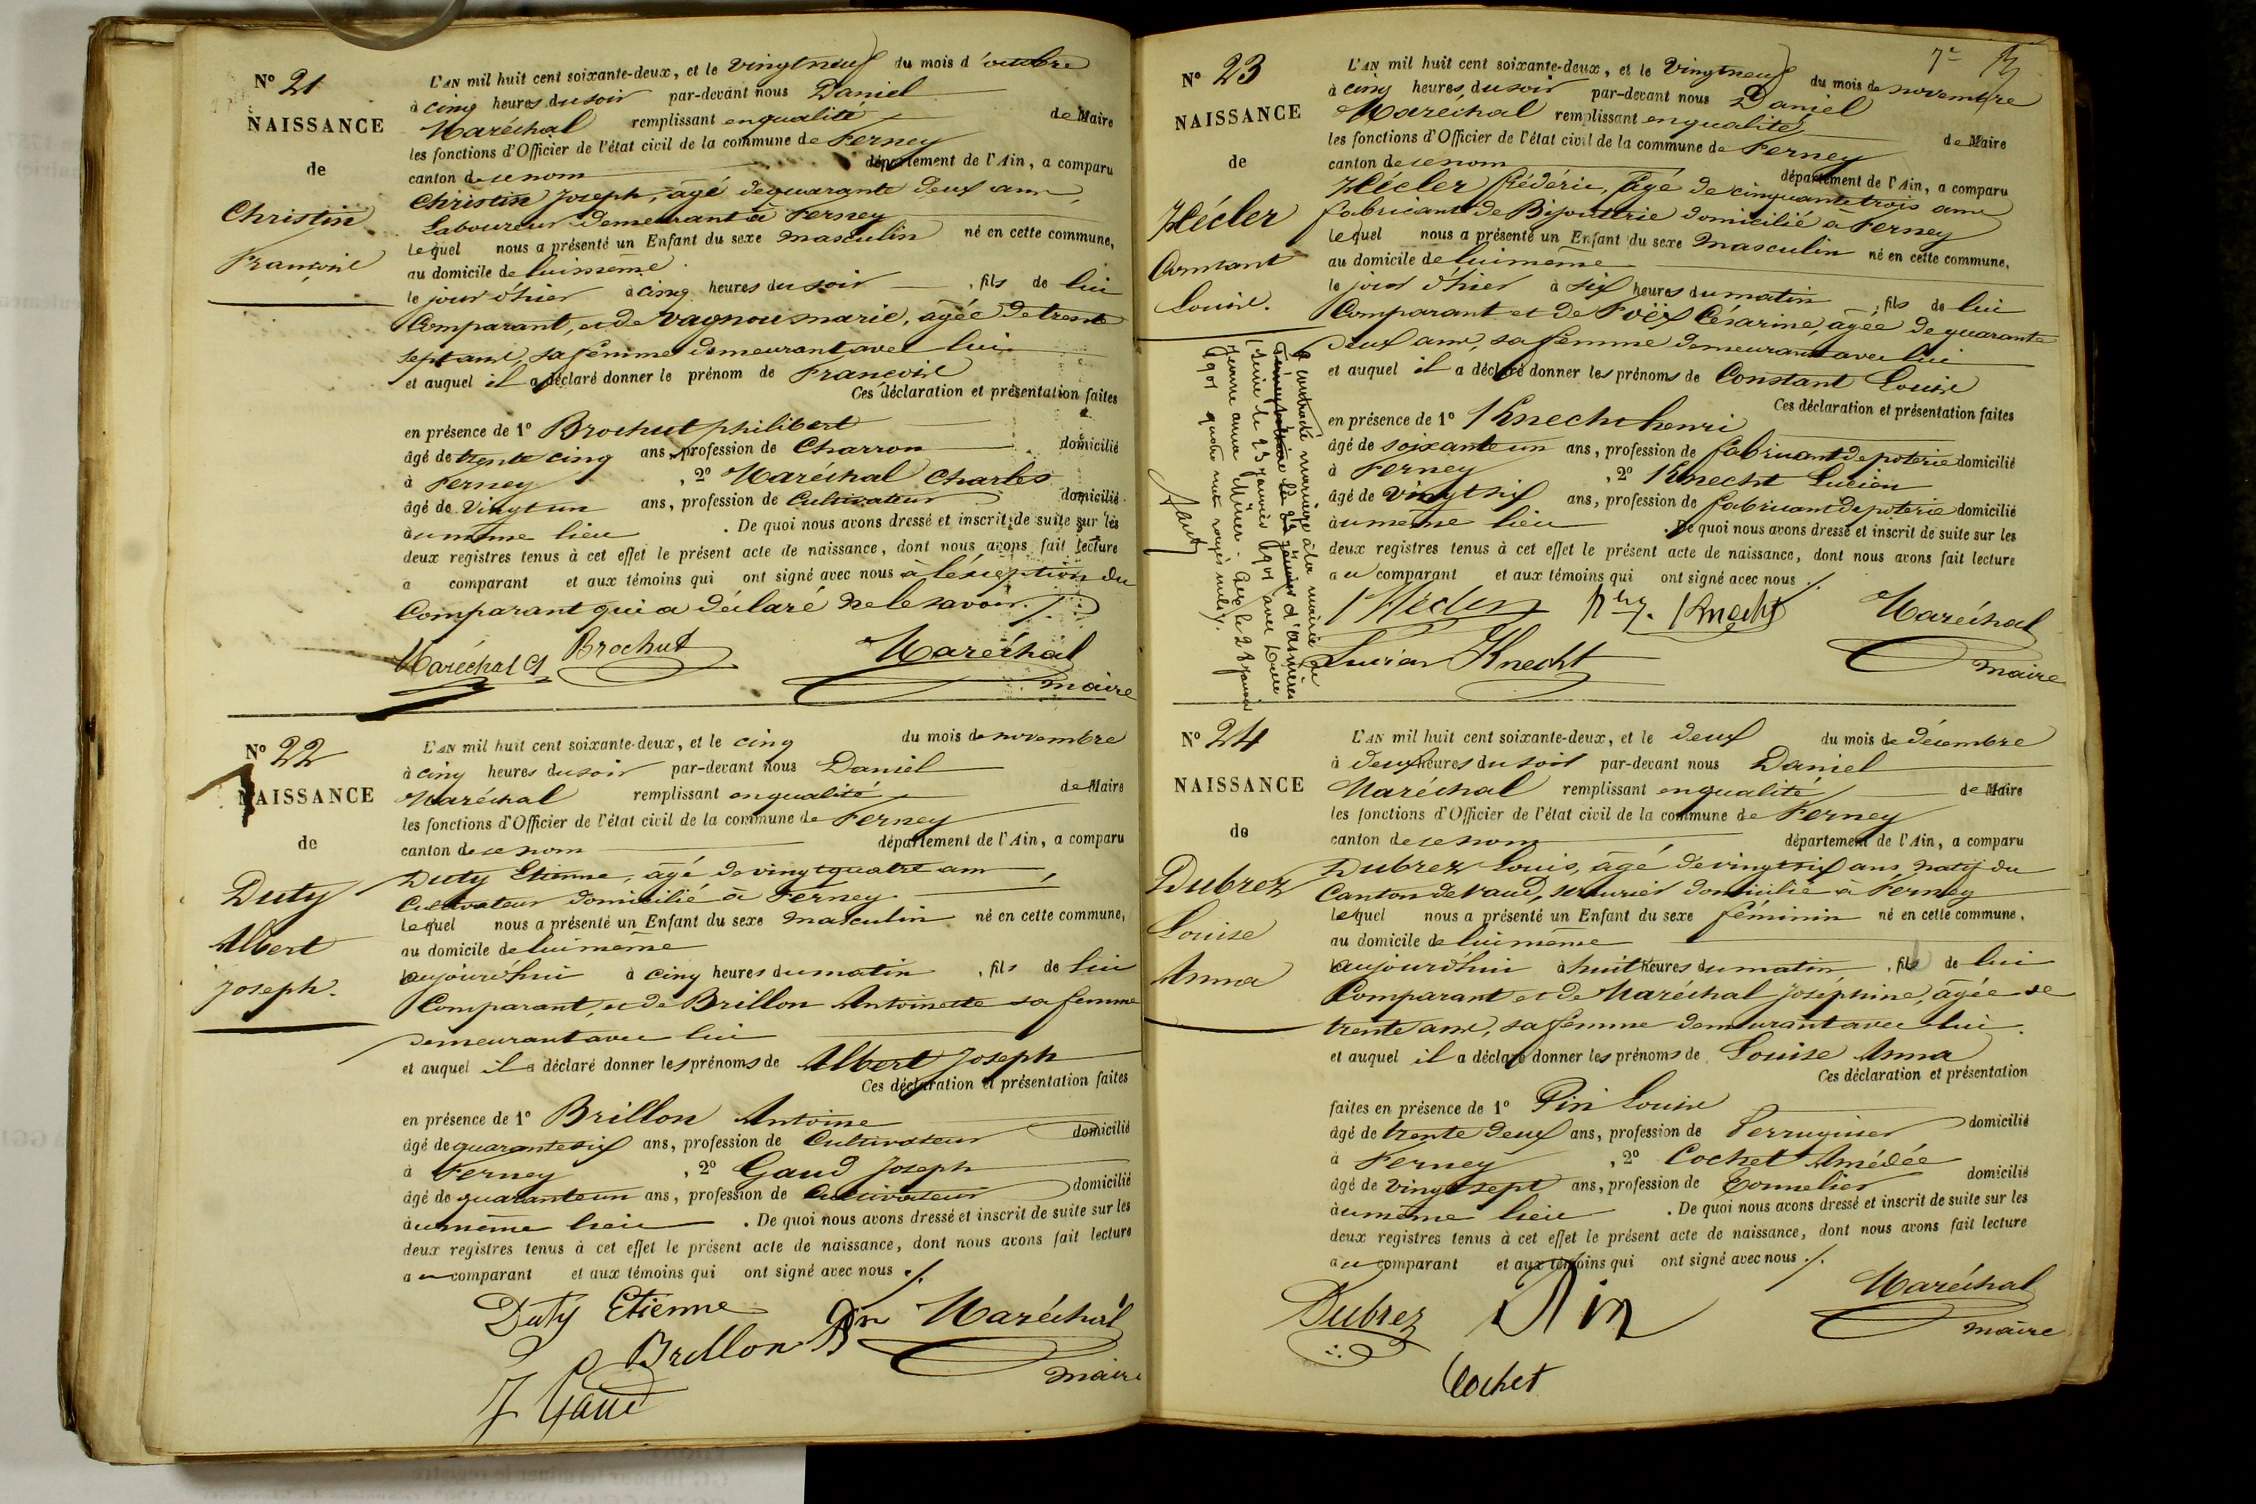 N° 21
NAISSANCE
de
Christin
François
L'AN mil huit cent soixante-deux, et le vingtneuf du mois d'octobre
à cinq heures du soir par-devant nous Daniel
Maréchal remplissant en qualité de Maire
les fonctions d'Officier de l'état civil de la commune de Ferney
canton de ce nom département de l'Ain, a comparu
Christin Joseph, âgé de quarante deux ans,
Laboureur demeurant à Ferney
lequel nous a présenté un Enfant du sexe masculin né en cette commune,
au domicile de lui même
le jour d'hier à cinq heures du soir, fils de lui
Comparant, et de Vagnou marie, âgée de trente
sept ans, sa femme demeurant avec lui
et auquel il a déclaré donner le prénom de François
Ces déclaration et présentation faites
en présence de 1° Brochut philibert
âgé de trente cinq ans, profession de Charron domicilié
à Ferney, 2° Maréchal Charles
âgé de Vingt un ans, profession de Cultivateur domicilié
au même lieu. De quoi nous avons dressé et inscrit de suite sur les
deux registres tenus à cet effet le présent acte de naissance, dont nous avons fait lecture
a comparant et aux témoins qui ont signé avec nous à l'éxception du
Comparant qui a déclaré ne le savoir ./.
Maréchal Ch Brochut Maréchal
maire
N° 22
NAISSANCE
de
Duty
Albert
Joseph.
L'AN mil huit cent soixante-deux, et le cinq du mois de novembre
à cinq heures du soir par-devant nous Daniel
Maréchal remplissant en qualité de Maire
les fonctions d'Officier de l'état civil de la commune de Ferney
canton de ce nom département de l'Ain, a comparu
Duty Etienne, âgé de vingt quatre ans,
Cultivateur domicilié à Ferney
lequel nous a présenté un Enfant du sexe masculin né en cette commune,
au domicile de lui même
aujourd'hui à cinq heures du matin, fils de lui
Comparant, et de Brillon Antoinette sa femme
demeurant avec lui
et auquel il a déclaré donner les prénoms de Albert Joseph
Ces déclaration et présentation faites
en présence de 1° Brillon Antoine
âgé de quarante six ans, profession de Cultivateur domicilié
à Ferney, 2° Gaud Joseph
âgé de quarante un ans, profession de Cultivateur domicilié
au même lieu. De quoi nous avons dressé et inscrit de suite sur les
deux registres tenus à cet effet le présent acte de naissance, dont nous avons fait lecture
au comparant et aux témoins qui ont signé avec nous ./.
Duty Etienne Maréchal
Brillon maire
J Gaud
7e
N° 23
NAISSANCE
de
Hécler
Constant
Louis.
L'AN mil huit cent soixante-deux, et le Vingtneuf du mois de novembre
à cinq heures du soir par-devant nous Daniel
Maréchal remplissant en qualité de Maire
les fonctions d'Officier de l'état civil de la commune de Ferney
canton de ce nom département de l'Ain, a comparu
Hécler frédéric, âgé de cinquante trois ans
fabricant de Bijouterie domicilié à Ferney
lequel nous a présenté un Enfant du sexe masculin né en cette commune,
au domicile de lui même
le jour d'hier à six heures du matin, fils de lui
Comparant et de Foëx Césarine, âgée de quarante
deux ans, sa femme demeurant avec lui
et auquel il a déclaré donner les prénoms de Constant Louis
Ces déclaration et présentation faites
en présence de 1° Knecht henri
âgé de soixante un ans, profession de fabricant de poterie domicilié
à Ferney, 2° Knecht Lucien
âgé de vingt six ans, profession de fabricant de poterie domicilié
au même lieu. De quoi nous avons dressé et inscrit de suite sur les
deux registres tenus à cet effet le présent acte de naissance, dont nous avons fait lecture
au comparant et aux témoins qui ont signé avec nous ./.
Hécler Hry. Knecht Maréchal
Lucien Knecht maire
a contracté mariage à la mairie
d'asnières
(Seine) le 23 janvier 1901 avec
Jeanne anna . Gex le 28 janvier
1901 quatre mots rayés nuls.
N° 24
NAISSANCE
de
Dubrez
Louise
Anna
L'AN mil huit cent soixante-deux, et le deux du mois de décembre
à deux heures du soir par-devant nous Daniel
Maréchal remplissant en qualité de Maire
les fonctions d'Officier de l'état civil de la commune de Ferney
canton de ce nom, département de l'Ain, a comparu
Dubrez Louis, âgé de vingt six ans, natif du
Canton de Vaud, serrurier domicilié à Ferney
lequel nous a présenté un Enfant du sexe féminin né en cette commune,
au domicile de lui même
aujourd'hui à huit heures du matin, fil de lui
Comparant et de Maréchal Joséphine, âgée de
trente ans, sa femme demeurant avec lui.
et auquel il a déclaré donner les prénoms de Louise Anna
Ces déclaration et présentation
faites en présence de 1° Pin Louis
âgé de trente deux ans, profession de Perruquier domicilié
à Ferney, 2° Cochet Amédée
âgé de vingt sept ans, profession de Tonnelier domicilié
au même lieu. De quoi nous avons dressé et inscrit de suite sur les
deux registres tenus à cet effet le présent acte de naissance, dont nous avons fait lecture
au comparant et aux témoins qui ont signé avec nous ./.
Dubrez Pin Maréchal
maire
Cochet